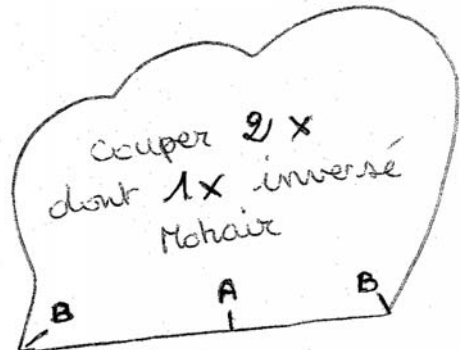 couper 2 x
dont 1x inversé
Mohair
B A B